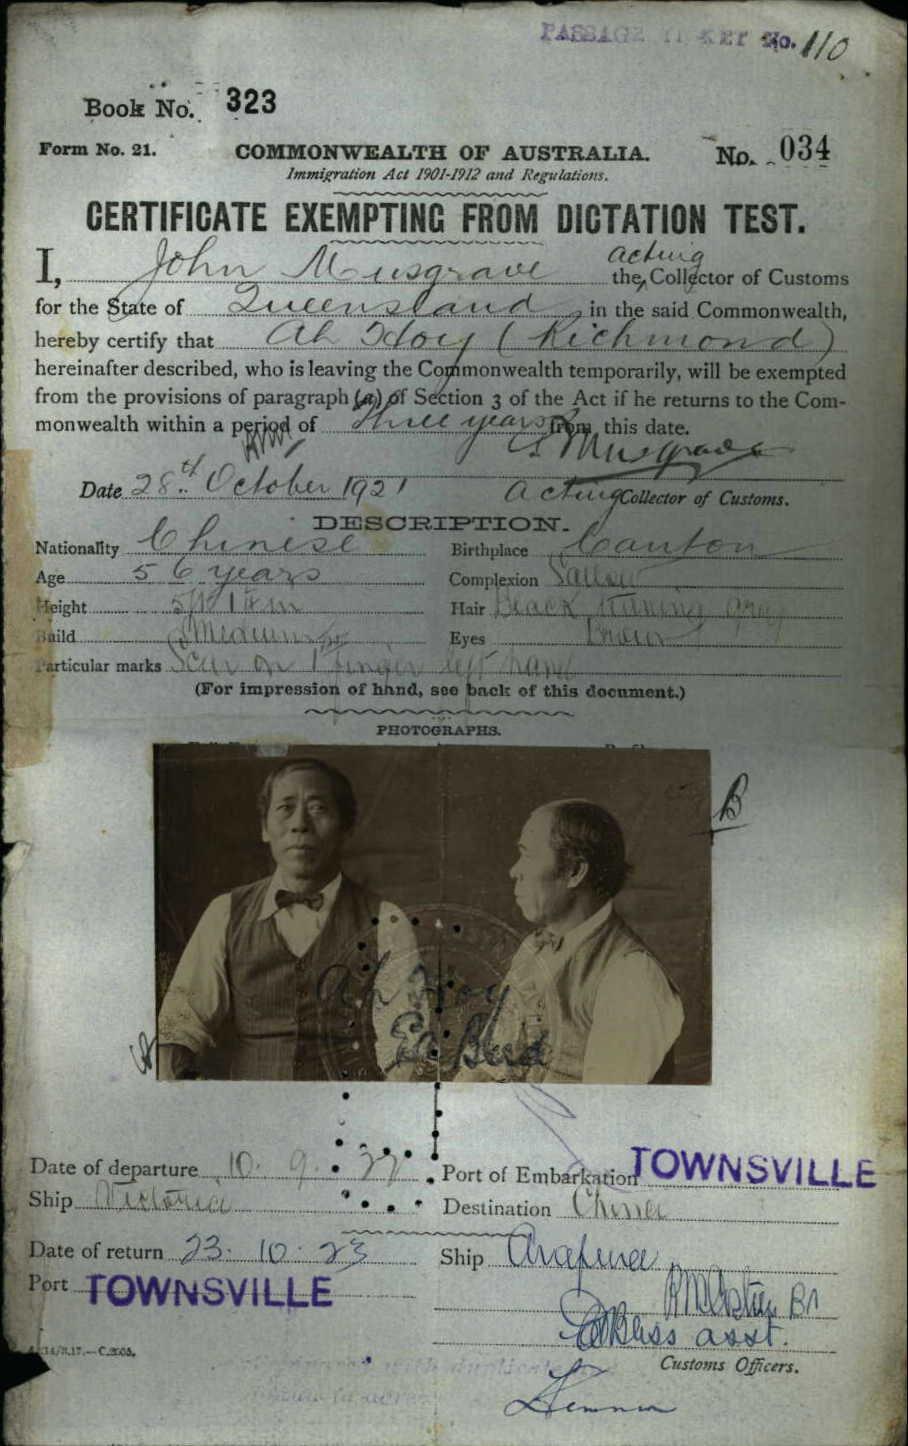 PASSAGE TICKET No. 110
Book No. 323
Form No. 21. COMMONWEALTH OF AUSTRALIA. No. 034
Immigration Act 1901-1912 and Regulations.
CERTIFICATE EXEMPTING FROM DICTATION TEST.
I, John Musgrave the acting Collector of Customs
for the State of Queensland in the said Commonwealth,
hereby certify that Ah Hoy (Richmond)
hereinafter described, who is leaving the Commonwealth temporarily, will be exempted
from the provisions of paragraph (a) of Section 3 of the Act if he returns to the Com-
monwealth within a period of Three years from this date.
Musgrave
Date 28th October 1921 Acting Collector of Customs.
DESCRIPTION.
Nationality Chinese Birthplace Canton
Age 56 years Complexion Sallow
Height Hair Black turning gray
Build Medium Eyes Brown
Particular marks Scar on 1st finger left hand
(For impression of hand, see back of this document.)
PHOTOGRAPHS.
B
Ah Hoy
Date of departure 10. 9. 22 Port of Embarkation TOWNSVILLE
Ship Victoria Destination China
Date of return 23. 10. 23 Ship Arafura
Port TOWNSVILLE
Bliss asst.
Customs Officers.